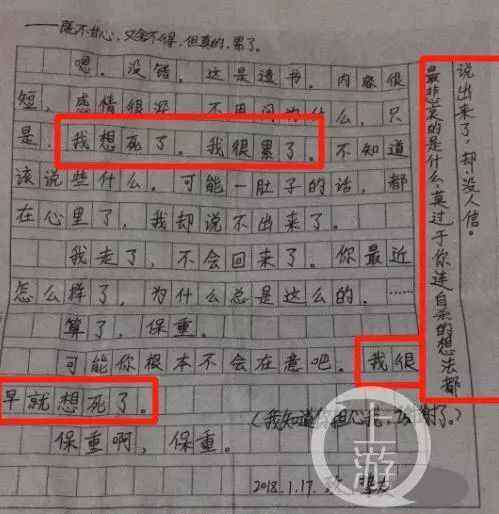 ——既不甘心，又舍不得，但真的，累了。
嗯。没错。这是遗书。内容很
短，感情很深，不用问为什么，只
是，我想死了。我很累了。不知道
该说些什么。可能一肚子的话，都
在心里了，我却说不出来了。
我走了，不会回来了。你最近
怎么样了，为什么总是这么的。……
算了，保重。
可能你根本不会在意吧。我很
早就想死了。
(我知道你担心我，谢谢了。)
保重啊，保重。
2018.1.17.
最悲哀的是什么，莫过于你连自杀的想法都
说出来了，却没人信。
上游